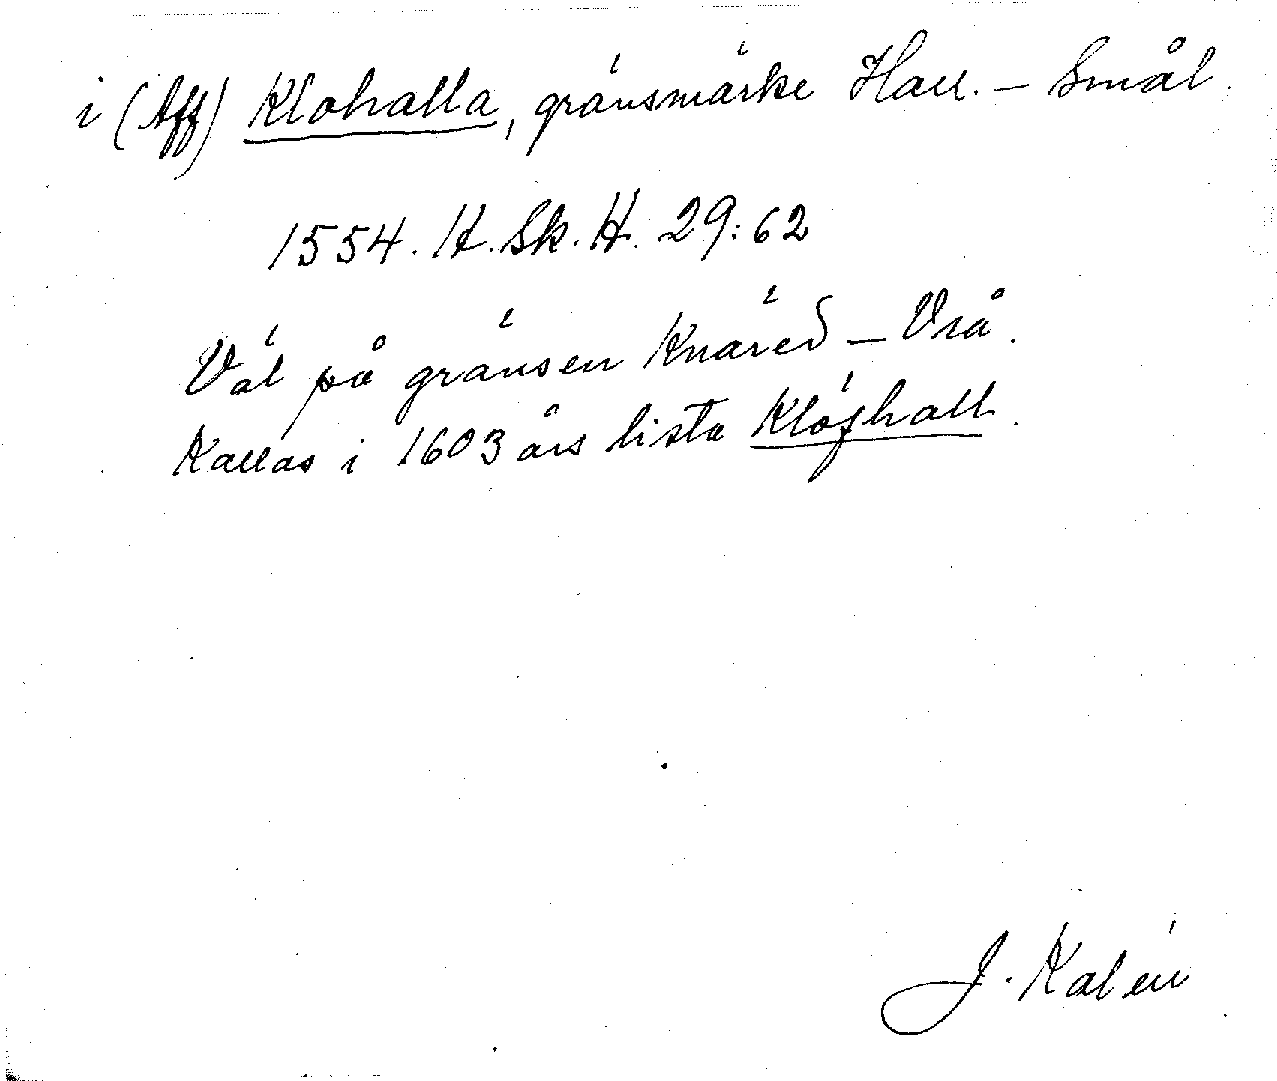 i (Aff) Klohalla, gränsmärke Hall. – Smål.
1554. H. Sk. H. 29:62
Väl på gränsen Knäred – Vrå.
Kallas i 1603 års lista Klöfhall.
J. Kalén